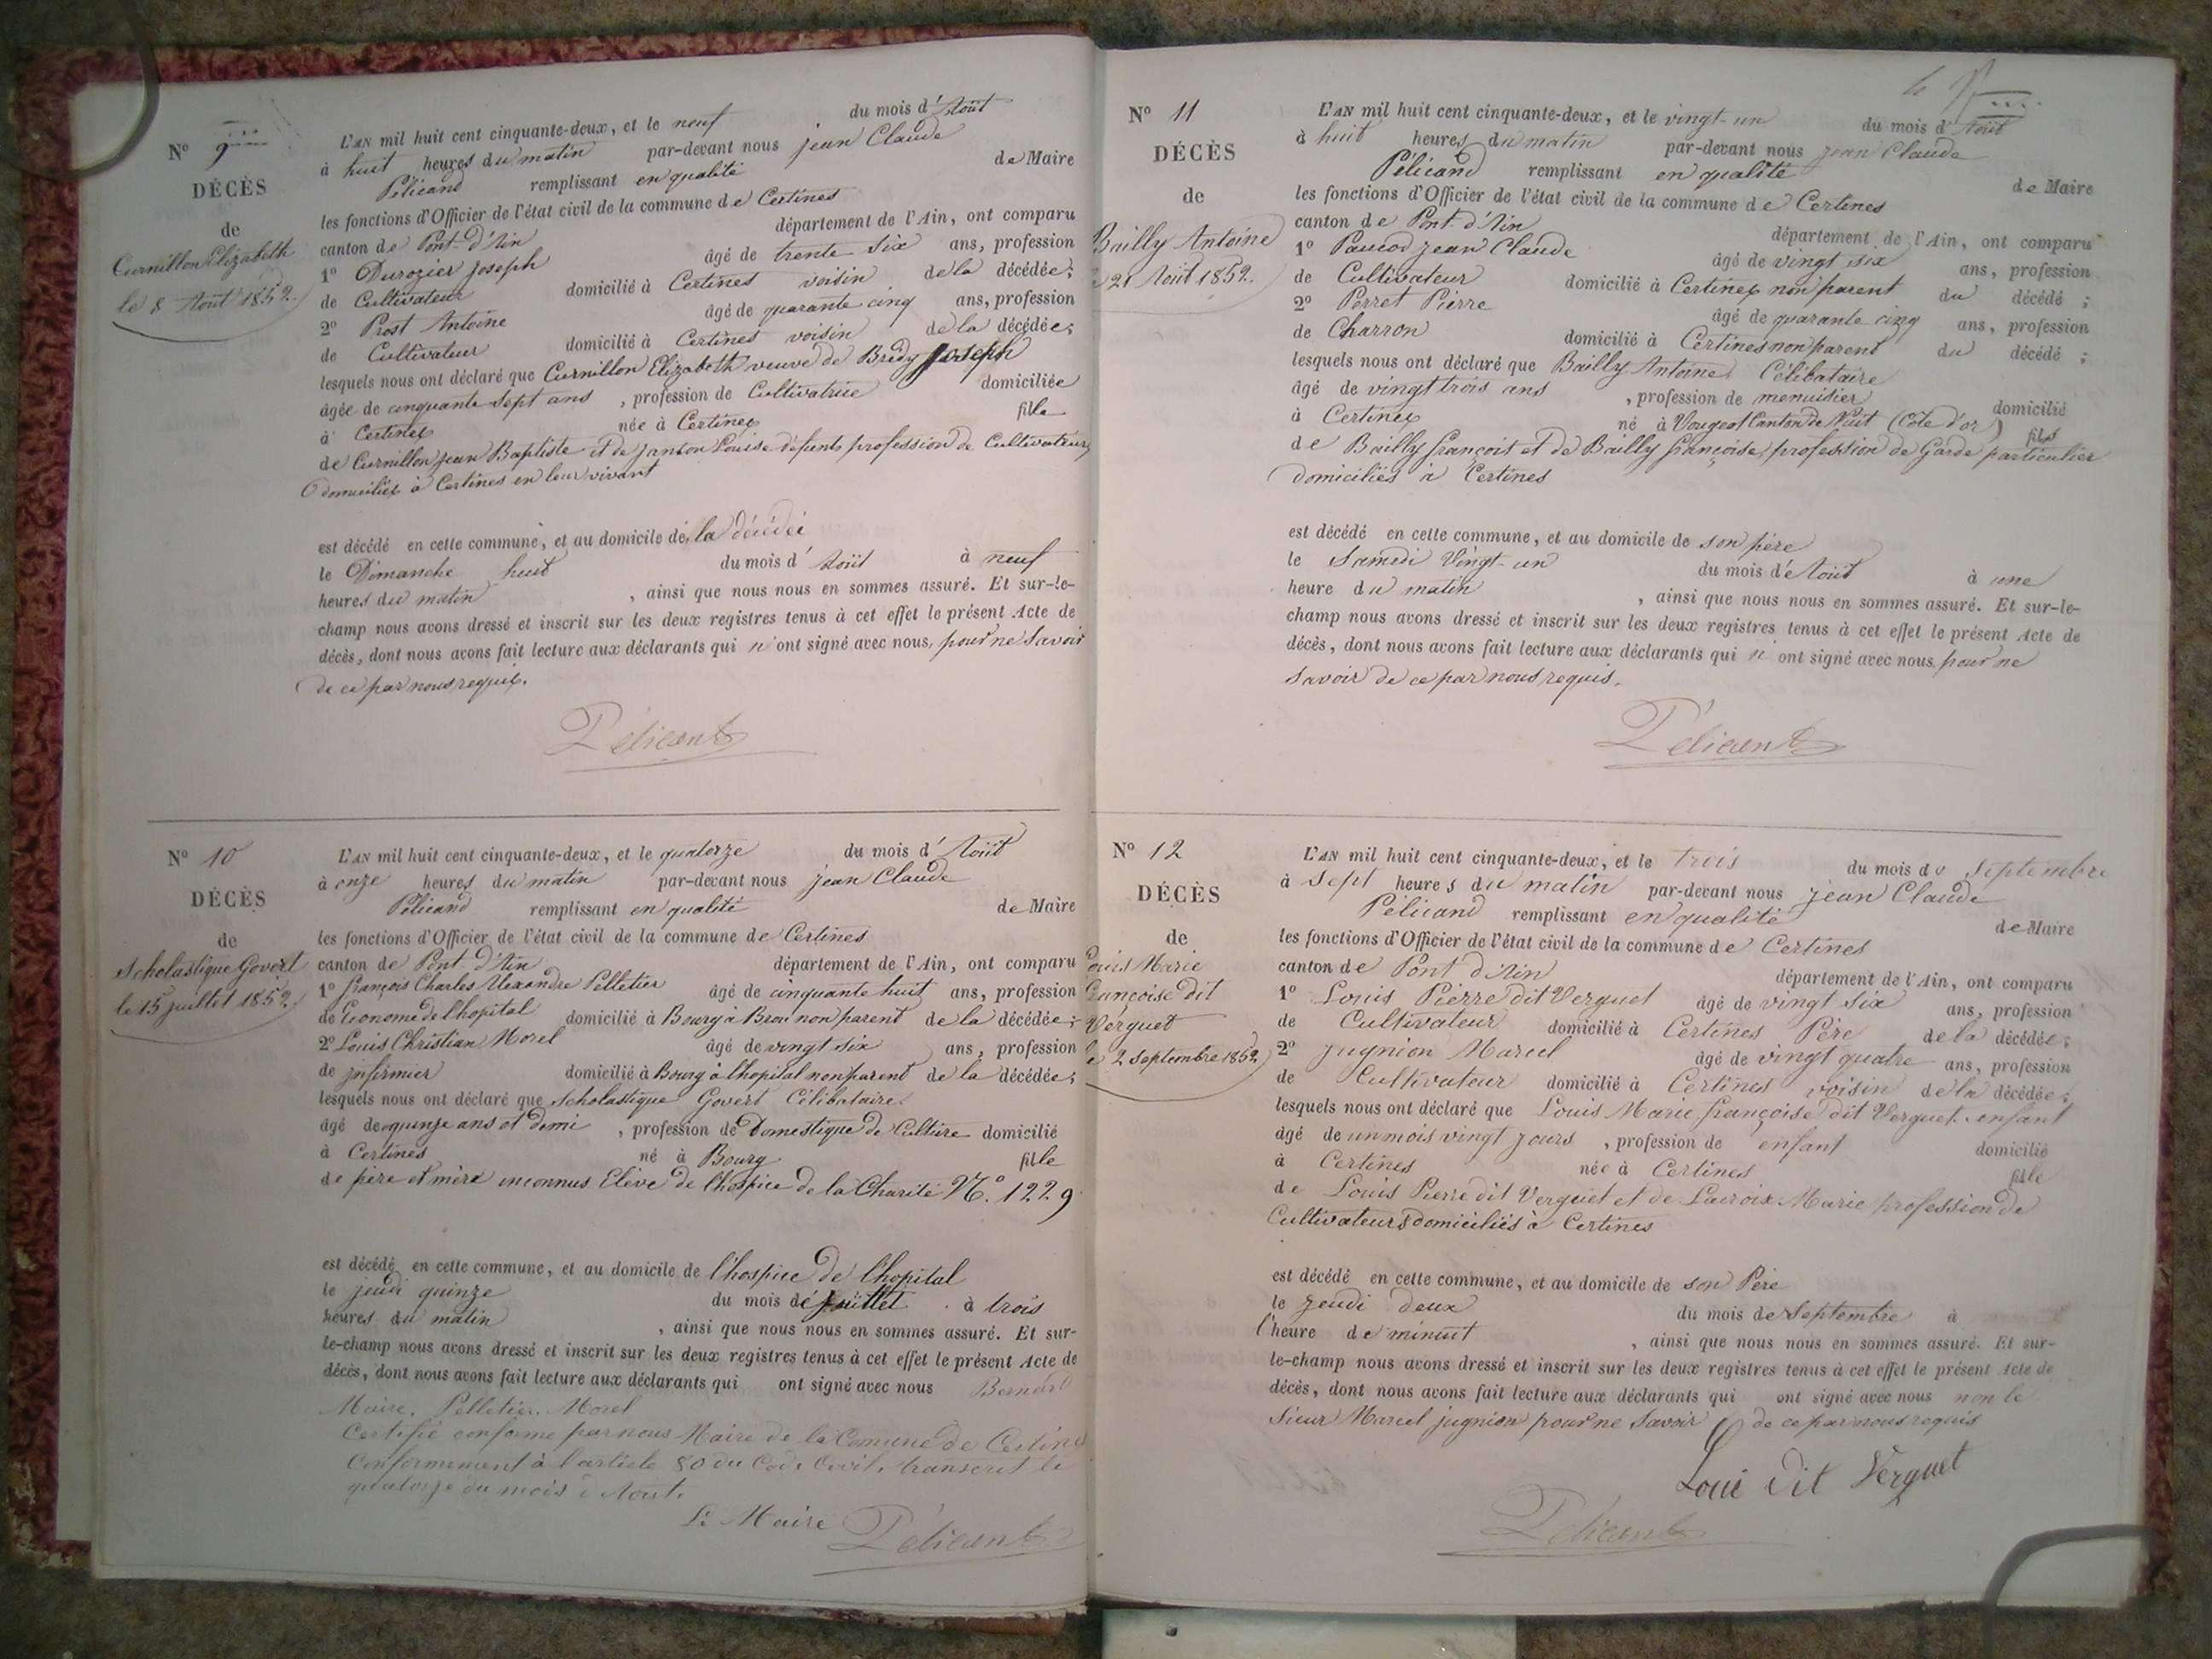 N° 9
DÉCÈS
de
Curnillon Elizabeth
le 8 Août 1852.
L'AN mil huit cent cinquante-deux, et le neuf du mois d'Août
à huit heures du matin par-devant nous jean Claude
Pélicand remplissant en qualité de Maire
les fonctions d'Officier de l'état civil de la commune de Certines
canton de Pont-d'Ain département de l'Ain, ont comparu
1° Durozier Joseph âgé de trente six ans, profession
de Cultivateur domicilié à Certines voisin de la décédée;
2° Prost Antoine âgé de quarante cinq ans, profession
de Cultivateur domicilié à Certines voisin de la décédée;
lesquels nous ont déclaré que Curnillon Elizabeth veuve de Bredy Joseph
âgée de cinquante sept ans, profession de Cultivatrice domiciliée
à Certines née à Certines fille
de Curnillon jean Baptiste et de Janton Louise défunts profession de Cultivateurs
domiciliés à Certines en leur vivant
est décédé en cette commune, et au domicile de la décédée
le Dimanche huit du mois d'Août à neuf
heures du matin, ainsi que nous nous en sommes assuré. Et sur-le-
champ nous avons dressé et inscrit sur les deux registres tenus à cet effet le présent Acte de
décès, dont nous avons fait lecture aux déclarants qui n'ont signé avec nous, pour ne Savoir
de ce par nous requis.
Pélicand
N° 10
DÉCÈS
de
Scholastique Govert
le 15 juillet 1852.
L'AN mil huit cent cinquante-deux, et le quatorze du mois d'Août
à onze heures du matin par-devant nous jean Claude
Pélicand remplissant en qualité de Maire
les fonctions d'Officier de l'état civil de la commune de Certines
canton de Pont-d'Ain département de l'Ain, ont comparu
1° françois Charles Alexandre Pelletier âgé de cinquante huit ans, profession
de Econome de lhopital domicilié à Bourg à Brou non parent de la décédée;
2° Louis Christian Morel âgé de vingt six ans, profession
de Infirmier domicilié à Bourg à lhopital non parent de la décédée;
lesquels nous ont déclaré que Scholastique Govert Célibataire
âgé de quinze ans et demi, profession de Domestique de Culture domicilié
à Certines né à Bourg fille
de père et mère inconnus Elève de lhospice de la Charité N.° 1229
est décédé en cette commune, et au domicile de lhospice de lhopital
le jeudi quinze du mois de juillet à trois
heures du matin, ainsi que nous nous en sommes assuré. Et sur-
le-champ nous avons dressé et inscrit sur les deux registres tenus à cet effet le présent Acte de
décès, dont nous avons fait lecture aux déclarants qui ont signé avec nous Bernard
Maire, Pelletier, Morel
Certifié conforme par nous Maire de la Comune de Certines
Conformement à l'article 80 du Code Civil, transcrit le
quatorze du mois d'Août.
Le Maire Pélicand
N° 11
DÉCÈS
de
Bailly Antoine
le 21 Août 1852.
L'AN mil huit cent cinquante-deux, et le vingt-un du mois d'Août
à huit heures du matin par-devant nous jean Claude
Pélicand remplissant en qualité de Maire
les fonctions d'Officier de l'état civil de la commune de Certines
canton de Pont-d'Ain département de l'Ain, ont comparu
1° Paucod jean Claude âgé de vingt six ans, profession
de Cultivateur domicilié à Certines non parent du décédé;
2° Perret Pierre âgé de quarante cinq ans, profession
de Charron domicilié à Certines non parent du décédé;
lesquels nous ont déclaré que Bailly Antoine Célibataire
âgé de vingt trois ans, profession de menuisier domicilié
à Certines né à Vougeot Canton de Nuit (Côte d'or) fils
de Bailly françois et de Bailly françoise profession de Garde particulier
domiciliés à Certines
est décédé en cette commune, et au domicile de son père
le Samedi Vingt-un du mois de Août à une
heure du matin, ainsi que nous nous en sommes assuré. Et sur-le-
champ nous avons dressé et inscrit sur les deux registres tenus à cet effet le présent Acte de
décès, dont nous avons fait lecture aux déclarants qui n'ont signé avec nous, pour ne
Savoir de ce par nous requis.
Pélicand
N° 12
DÉCÈS
de
Louis Marie
françoise dit
Verguet
le 2 Septembre 1852
L'AN mil huit cent cinquante-deux, et le trois du mois de Septembre
à Sept heures du matin par-devant nous jean Claude
Pélicand remplissant en qualité de Maire
les fonctions d'Officier de l'état civil de la commune de Certines
canton de Pont d'Ain département de l'Ain, ont comparu
1° Louis Pierre dit Verguet âgé de vingt six ans, profession
de Cultivateur domicilié à Certines Père de la décédée;
2° jugnion Marcel âgé de vingt quatre ans, profession
de Cultivateur domicilié à Certines voisin de la décédée;
lesquels nous ont déclaré que Louis Marie françoise dit Verguet enfant
âgé de un mois vingt jours, profession de enfant domicilié
à Certines née à Certines fille
de Louis Pierre dit Verguet et de Lacroix Marie profession de
Cultivateurs domiciliés à Certines
est décédé en cette commune, et au domicile de son Père
le jeudi deux du mois de Septembre à
l'heure de minuit, ainsi que nous nous en sommes assuré. Et sur-
le-champ nous avons dressé et inscrit sur les deux registres tenus à cet effet le présent Acte de
décès, dont nous avons fait lecture aux déclarants qui ont signé avec nous non le
Sieur Marcel jugnion pour ne Savoir de ce par nous requis
Loui dit Verguet
Pélicand